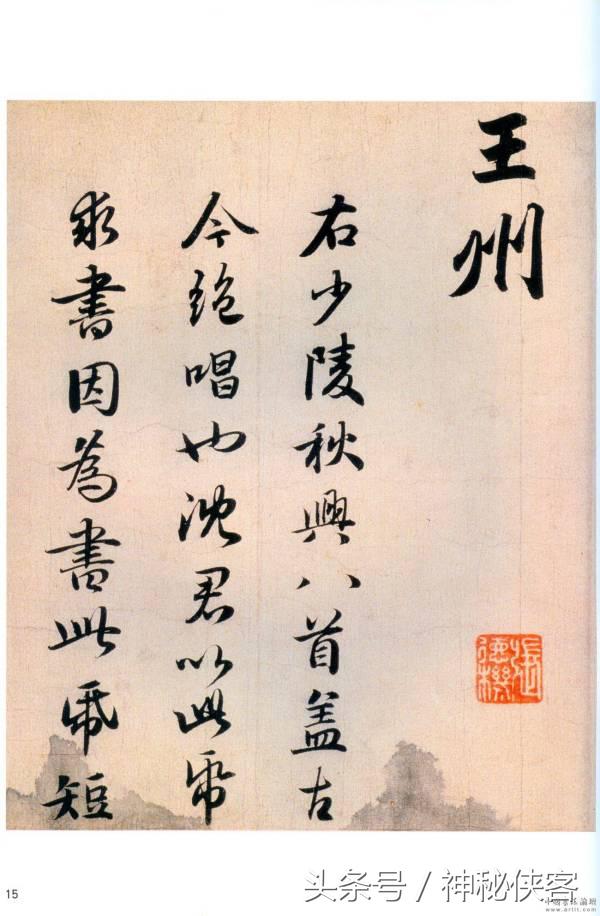 王州
右少陵秋興八首盖古
今絶唱也沈君以此帋
求書因為書此帋短
張德機
15
头条号 / 神秘侠客